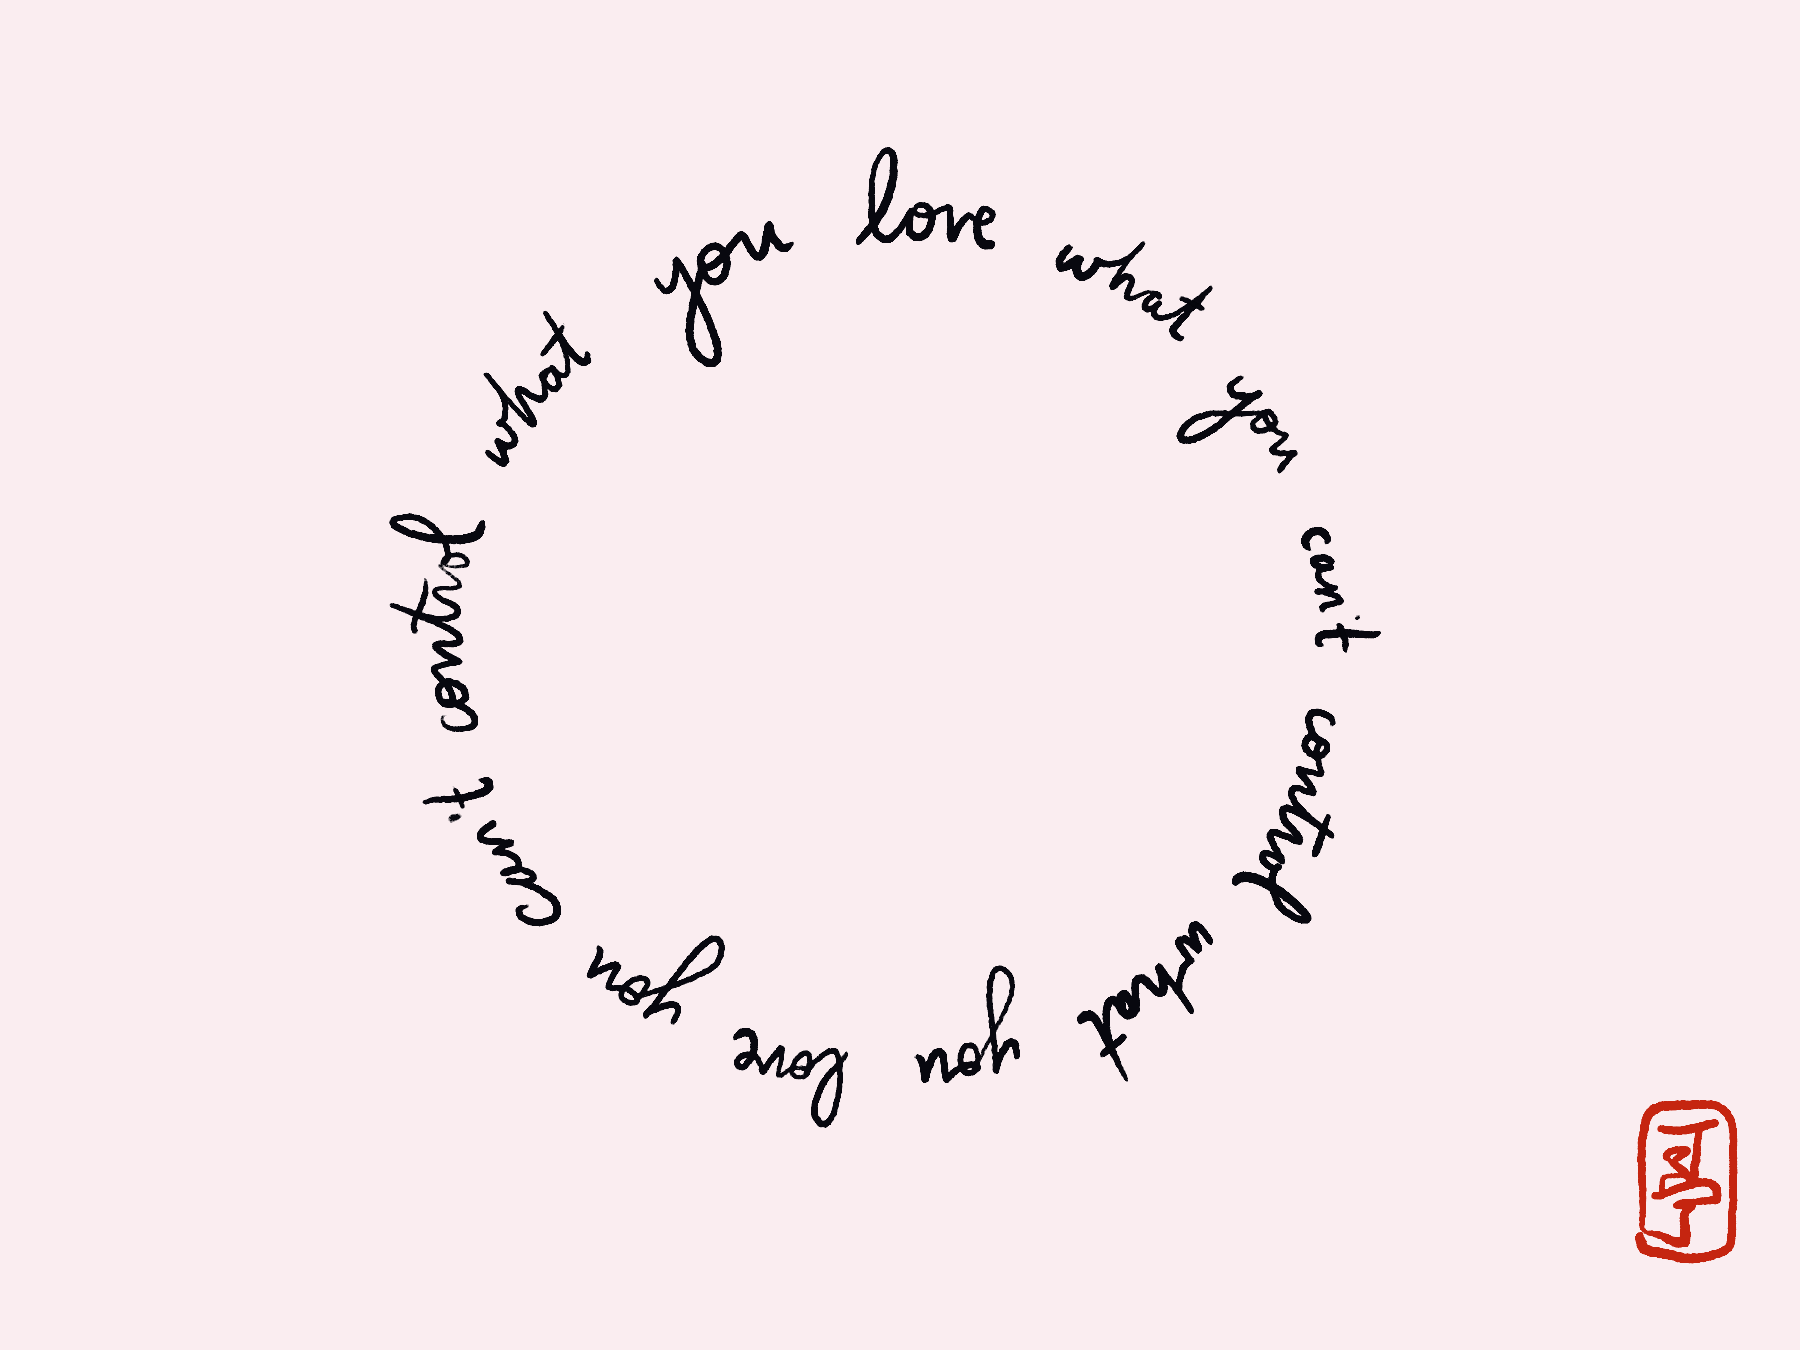 you love what you can't control what you love you can't control what